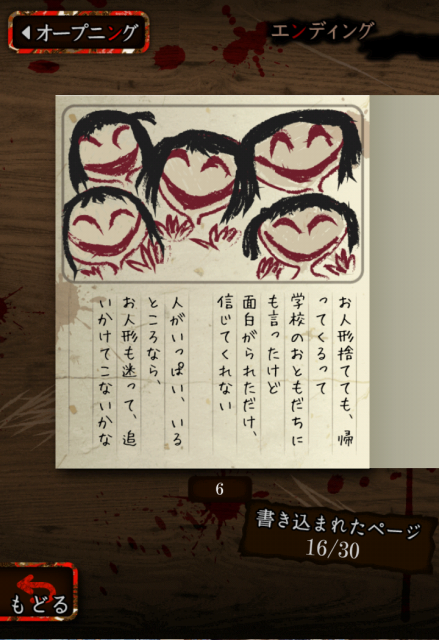 オープニング
エンディング
お人形捨てても、帰
ってくるって
学校のおともだちに
も言ったけど
面白がられただけ、
信じてくれない
人がいっぱい、いる
ところなら、
お人形も迷って、追
いかけてこないかな
6
書き込まれたページ
16/30
もどる